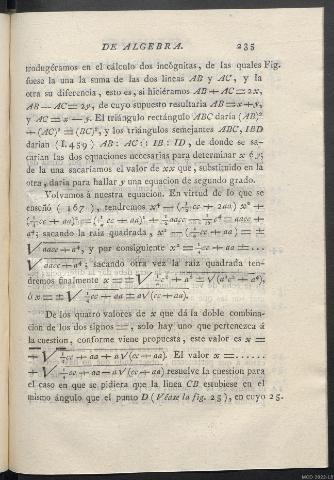 DE ALGEBRA. 235
trodugéramos en el cálculo dos incógnitas, de las quales Fig.
fuese la una la suma de las dos lineas AB y AC, y la
otra su diferencia, esto es, si hiciéramos AB + AC = 2x,
AB — AC = 2y, de cuyo supuesto resultaria AB = x + y,
y AC = x — y. El triángulo rectángulo ABC daria (AB)²
+ (AC)² = (BC)², y los triángulos semejantes ABC, IBD
darian (I. 459) AB : AC :: IB : ID, de donde se sa-
carian las dos equaciones necesarias para determinar x é y;
de la una sacaríamos el valor de xx que, substituido en la
otra, daria para hallar y una equacion de segundo grado.
Volvamos á nuestra equacion. En virtud de lo que se
enseñó (167), tendremos x⁴ — (½cc + 2aa) x² +
(¼cc + aa)² = (¼cc + aa)² + ½aacc — 1/16 c⁴ = aacc +
a⁴; sacando la raiz quadrada, x² — (¼cc + aa) = ±
√aacc + a⁴, y por consiguiente x² = ¼cc + aa ± ...
√aacc + a⁴; sacando otra vez la raiz quadrada ten-
dremos finalmente x = ± √¼c² + a² ± √(a²c² + a⁴),
ó x = ± √¼cc + aa ± a√(cc + aa).
De los quatro valores de x que dá la doble combina-
cion de los dos signos ±, solo hay uno que pertenezca á
la cuestion, conforme viene propuesta, este valor es x =
+ √¼cc + aa + a√(cc + aa). El valor x = ......
+ √¼cc + aa — a√(cc + aa) resuelve la cuestion para
el caso en que se pidiera que la linea CB estubiese en el
mismo ángulo que el punto D (Véase la fig. 25), en cuyo 25.